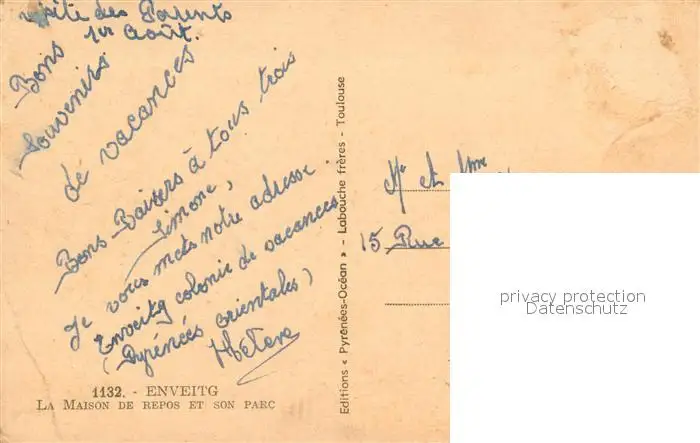 visite des Parents
1er Août.
Bons
souvenirs
de vacances
Bons Baisers à tous trois
Simone,
Je vous mets notre adresse.
Enveitg colonie de vacances
(Pyrénées orientales)
1132. - ENVEITG
LA MAISON DE REPOS ET SON PARC
Editions « Pyrénées-Océan » - Labouche frères - Toulouse
Mr et Mme
15 Rue
privacy protection
Datenschutz